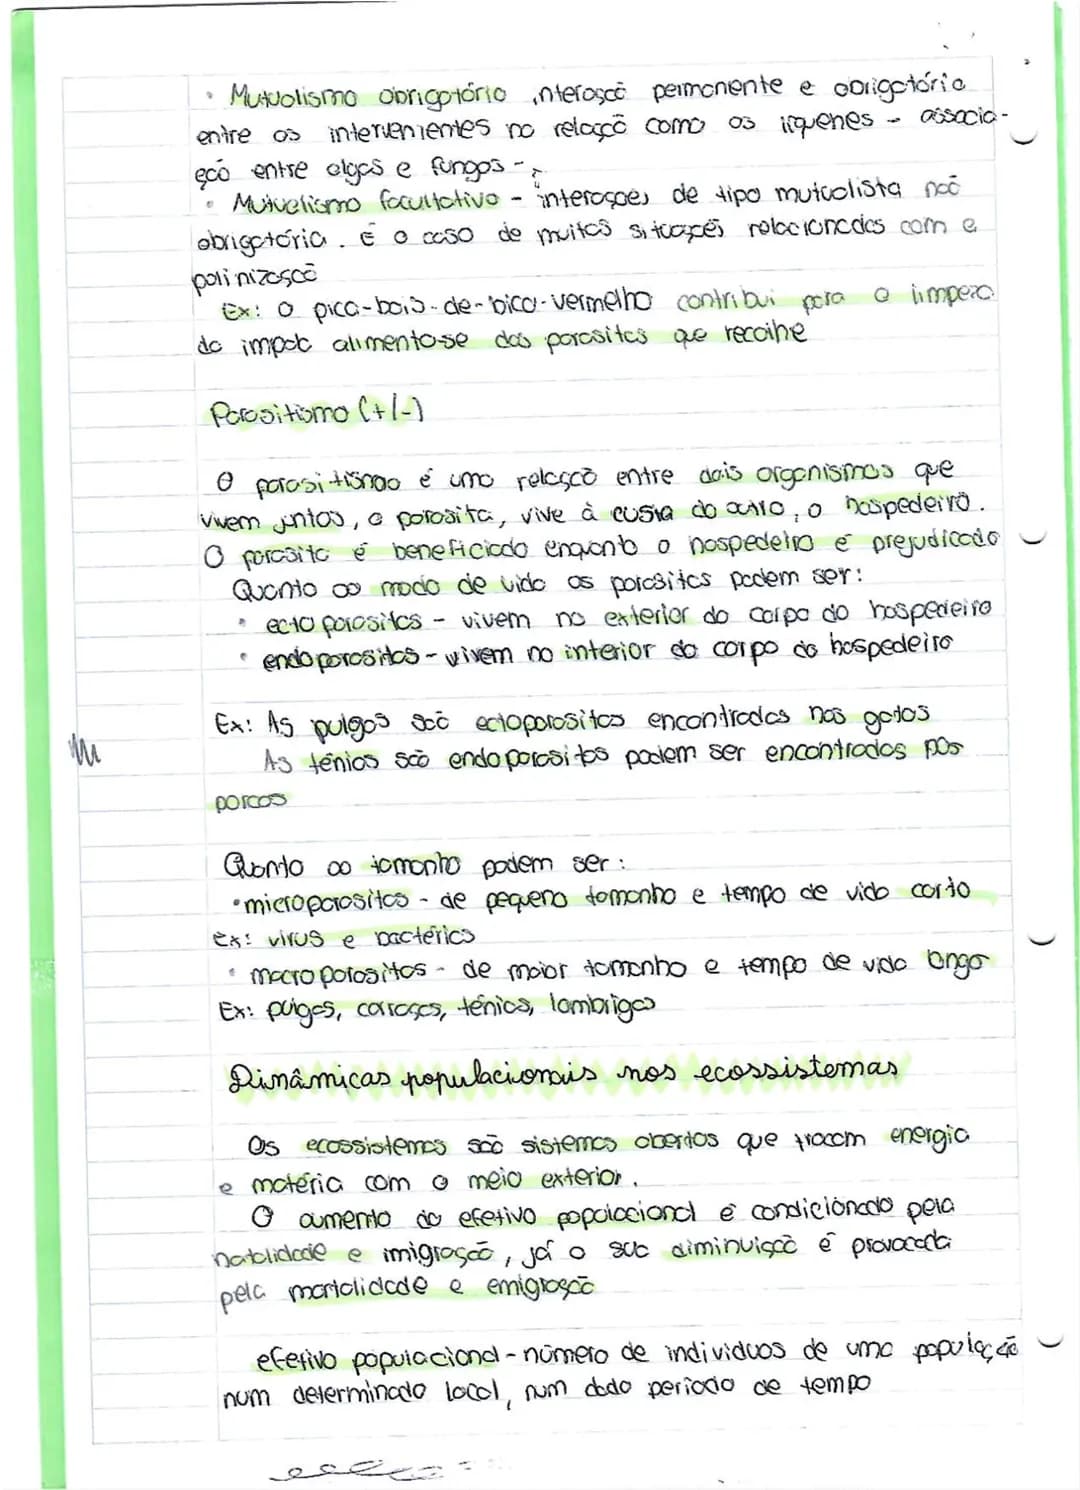 • Mutualismo obrigatório interação permanente e obrigatória
entre os intervenientes na relação como os líquenes - associa-
ção entre algas e fungos -
• Mutualismo facultativo - interações de tipo mutualista não
obrigatória. É o caso de muitas situações relacionadas com a
polinização
Ex: O pica-bois-de-bico-vermelho contribui para a limpeza
da impala alimento-se dos parasitas que recolhe
Parasitismo (+/-)
O parasitismo é uma relação entre dois organismos que
vivem juntos, o parasita, vive à custa do outro, o hospedeiro.
O parasita é beneficiado enquanto o hospedeiro é prejudicado
Quanto ao modo de vida os parasitas podem ser:
• ectoparasitas - vivem no exterior do corpo do hospedeiro
• endoparasitas - vivem no interior do corpo do hospedeiro
Ex: As pulgas são ectoparasitas encontradas nos gatos
As ténias são endoparasitas podem ser encontradas nos
porcos
Quanto ao tamanho podem ser:
• microparasitas - de pequeno tamanho e tempo de vida curto
Ex: vírus e bactérias
• macroparasitas - de maior tamanho e tempo de vida longo
Ex: pulgas, carraças, ténias, lombrigas
Dinâmicas populacionais nos ecossistemas
Os ecossistemas são sistemas abertos que trocam energia
e matéria com o meio exterior.
O aumento do efetivo populacional é condicionado pela
natalidade e imigração, já a sua diminuição é provocada
pela mortalidade e emigração
efetivo populacional - número de indivíduos de uma população
num determinado local, num dado período de tempo